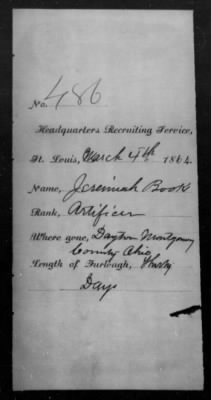 No. 486
Headquarters Recruiting Service,
St. Louis, March 4th 1864.
Name, Jeremiah Book
Rank, Artificer
Where gone, Dayton Montgomery
County Ohio
Length of Furlough, Thirty
Days